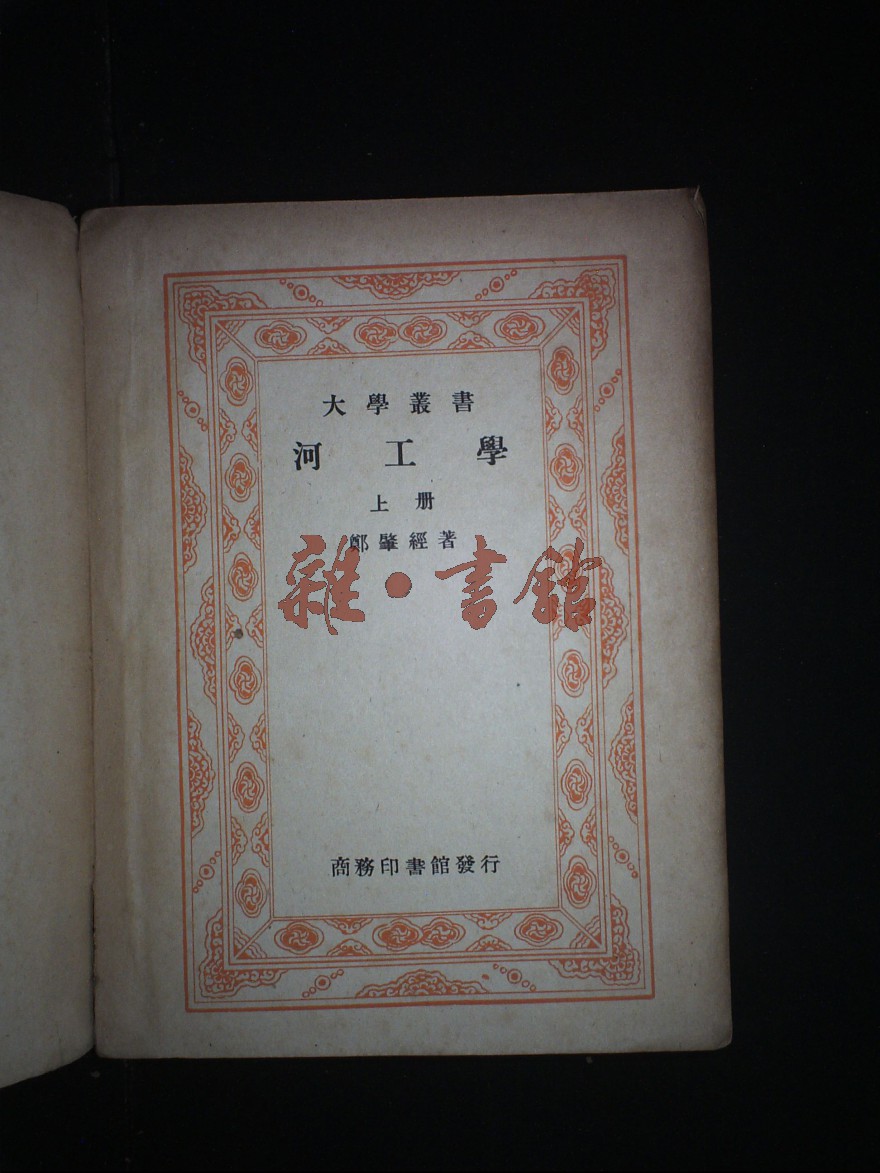 大學叢書
河工學
上册
鄭肇經著
雜·書館
商務印書館發行